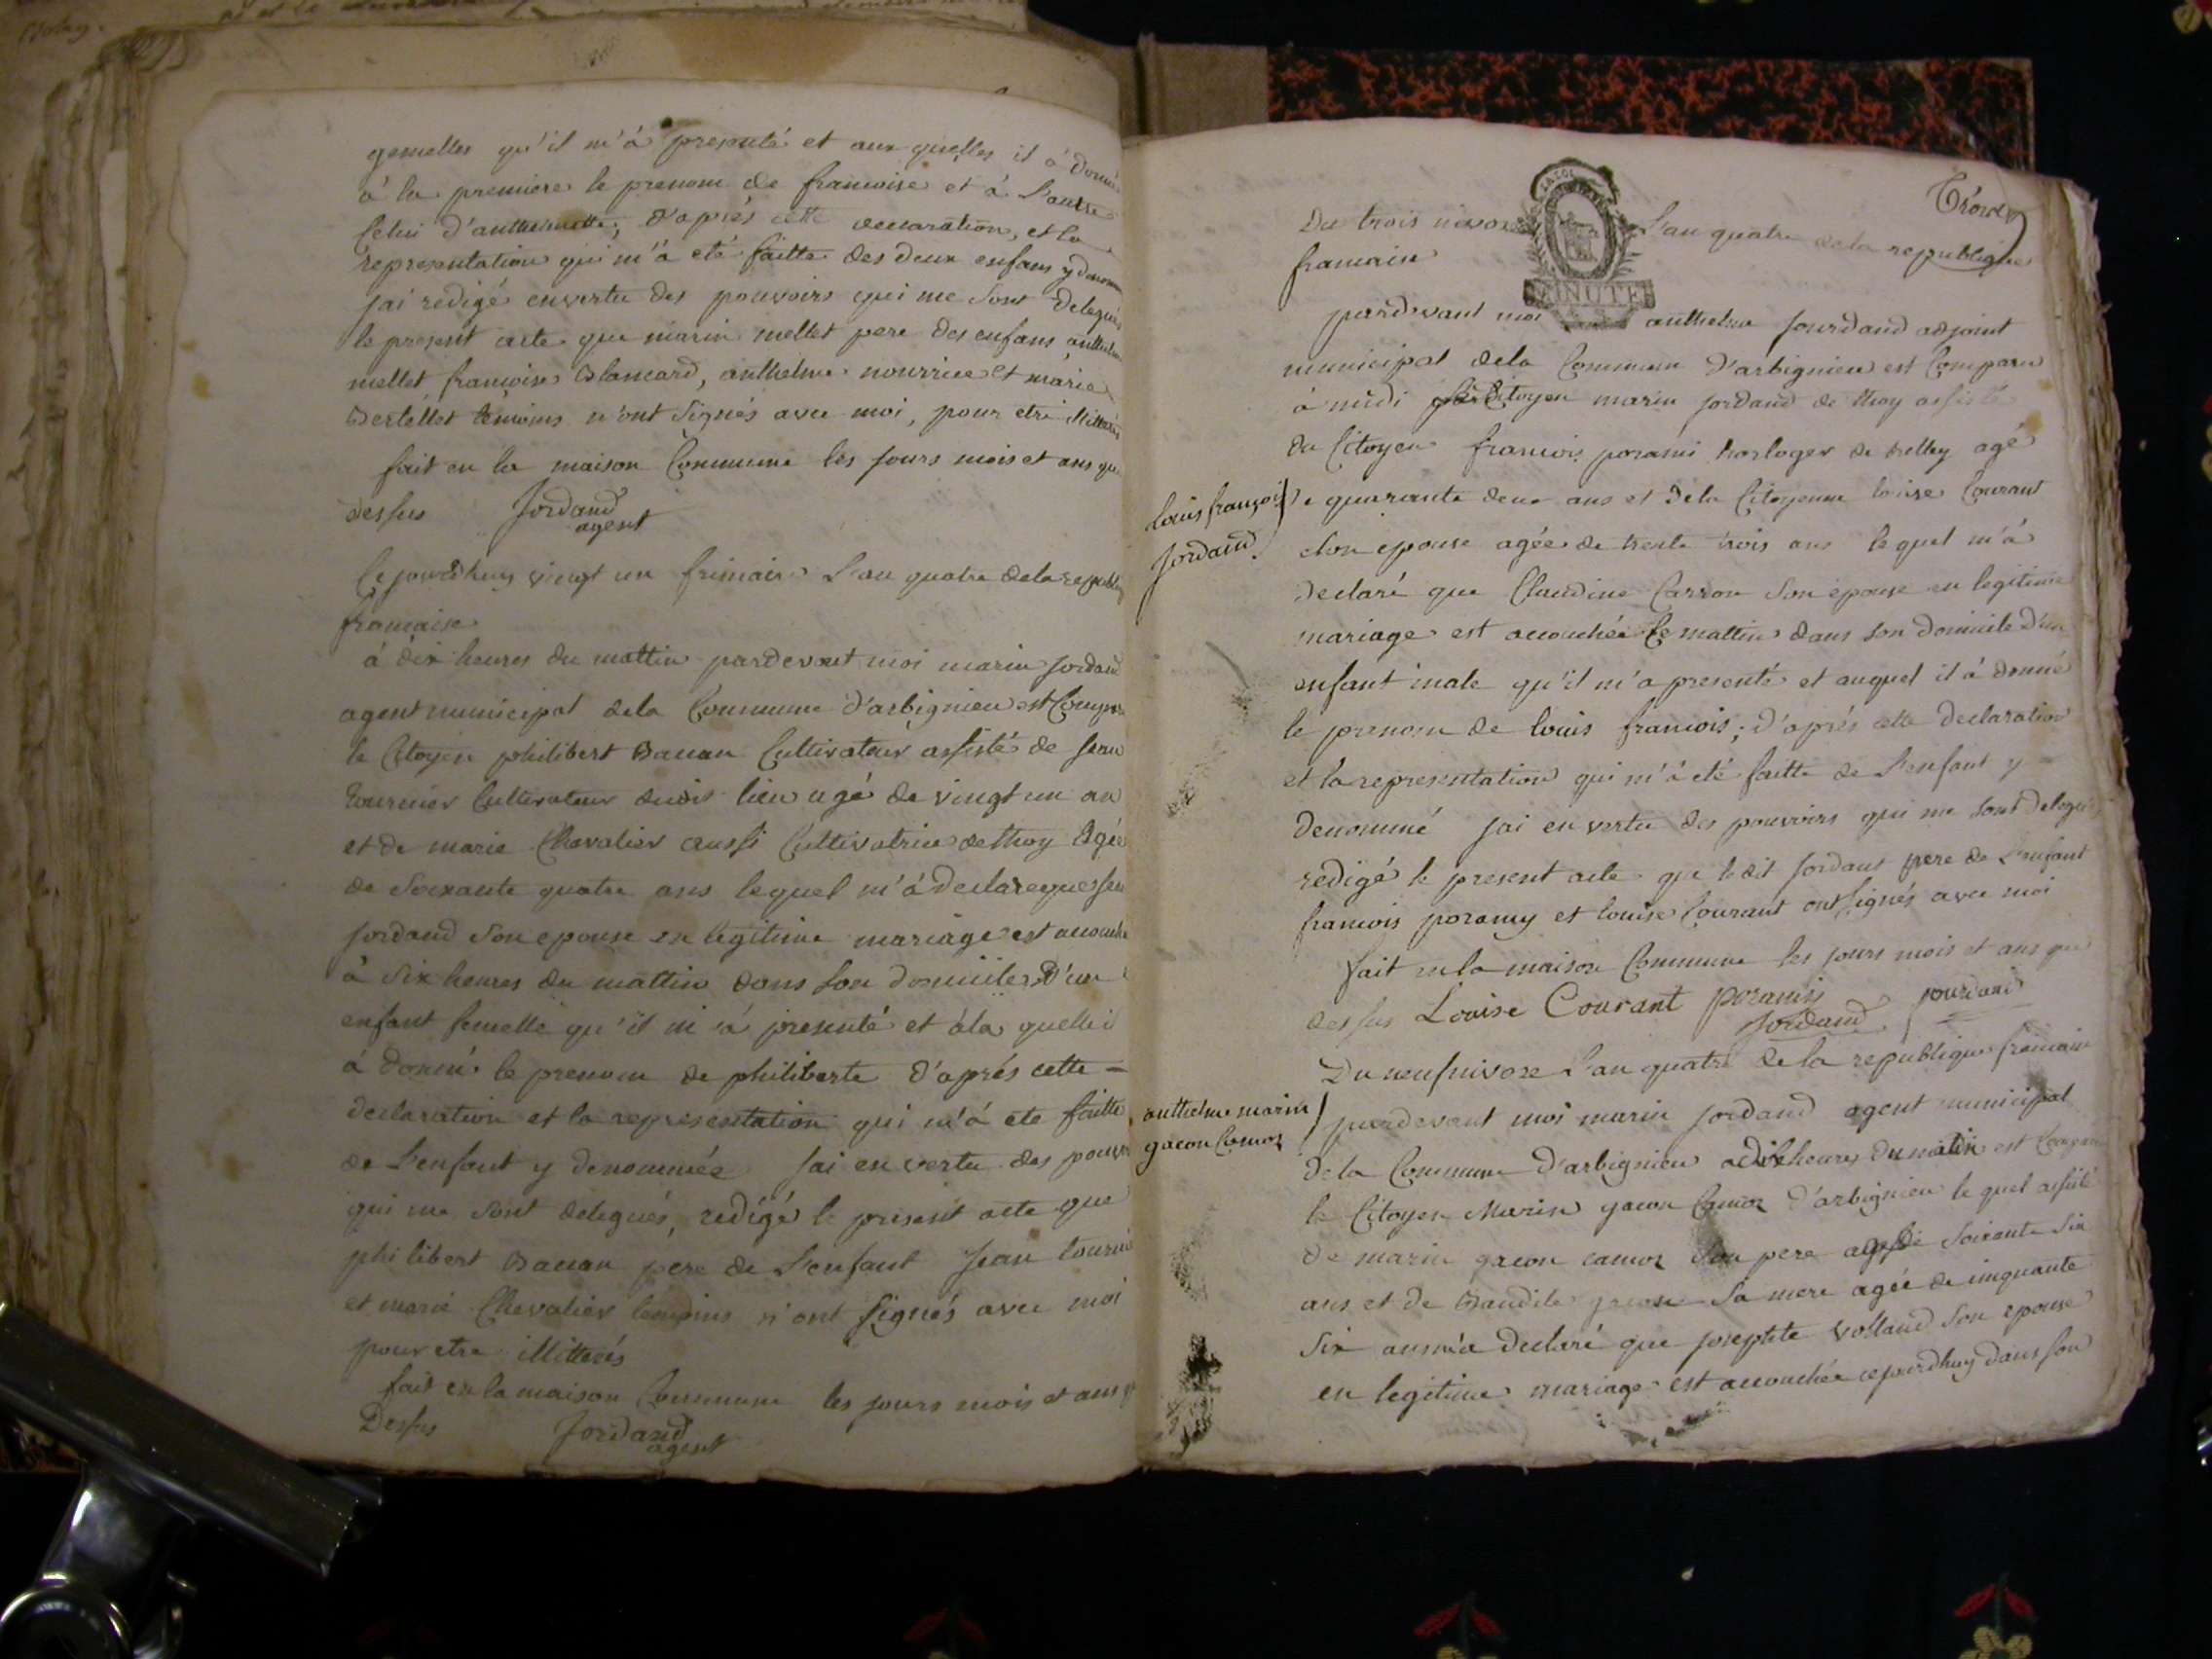 gemelles qu'il m'à presenté et aux quelles il à donné
à la premiere le prenom de francoise et à L'autre
Celui d'anthelmette, D'aprés cette declaration, et la
representation qui m'à eté faitte des deux enfans y denom
jai redigé envertu des pouvoirs qui me sont delegués
le present acte que marin mellet pere des enfans anthelme
mellet francoise Blancard, anthelme nourrice et marie
Bertellet temoins n'ont signés avec moi, pour etre illitterés
fait en la maison Commune les jours mois et ans que
dessus Jordand
agent
Cejourdhuy vingt un frimaire L'an quatre dela republiq
francaise
à dix heures du mattin pardevant moi marin Jordand
agent municipal dela Commune d'arbignieu est Compar
le Citoyen philibert Bauan Cultivateur assisté de Jean
tournier Cultivateur dudit lieu agé de vingt un an
et de marie Chevalier aussi Cultivatrice de thoy Agée
de soixante quatre ans lequel m'à declare que
Jordand son epouse en legitime mariage est accouché
à six heures du mattin dans son domicile D'un
enfant femelle qu'il m'à presenté et àla quelle il
à donné le prenom de philiberte D'aprés cette =
declaration et la representation qui m'à eté faitte
de L'enfant y denommée Jai en vertu des pouvoirs
qui me sont delegués, redigé le present acte que
philibert Bauan pere de L'enfant Jean tournié
et marie Chevalier temoins n'ont signés avec moi
pour etre illitterés
fait en la maison Commune les jours mois et ans q
Dessus Jordand
agent
Du trois nivose L'an quatre dela republique
francaise
MINUTE
pardevant moi anthelme Jourdand adjoint
municipal dela Commune D'arbignieu est Comparu
à midi Citoyen marin Jordand de thoy assisté
du Citoyen francois porami horloger de belley agé
de quarante deux ans et dela Citoyenne louise Courant
louis françois
Jordand
son epouse agée de trente trois ans lequel m'à
declaré que Claudine Carron son epouse en legitime
mariage est accouchée Ce mattin dans son domicile d'un
enfant male qu'il m'a presenté et auquel il à donné
le prenom de louis francois; d'aprés cette declaration
et la representation qui m'à eté faitte de L'enfant y
denommé jai en vertu des pouvoirs qui me sont delegués
redigé le present acte que le dit Jordant pere de L'enfant
francois poramy et louise Courant ont signés avec moi
fait en la maison Commune les jours mois et ans que
dessus Louise Courant poramis Jourdand
Jordand
Du neuf nivose L'an quatre de la republique francaise
anthelme marin
gacon Camoz
pardevant moi marin Jordand agent municipal
dela Commune D'arbignieu a dix heures du matin est Compar
le Citoyen Marin gacon Camoz D'arbignieu le quel assisté
de marin gacon camoz son pere agé de soixante six
ans et de Baudile gacon sa mere agée de cinquante
six ans m'a declaré que Josephte Volland son epouse
en legitime mariage est accouchée cejourdhuy dans son